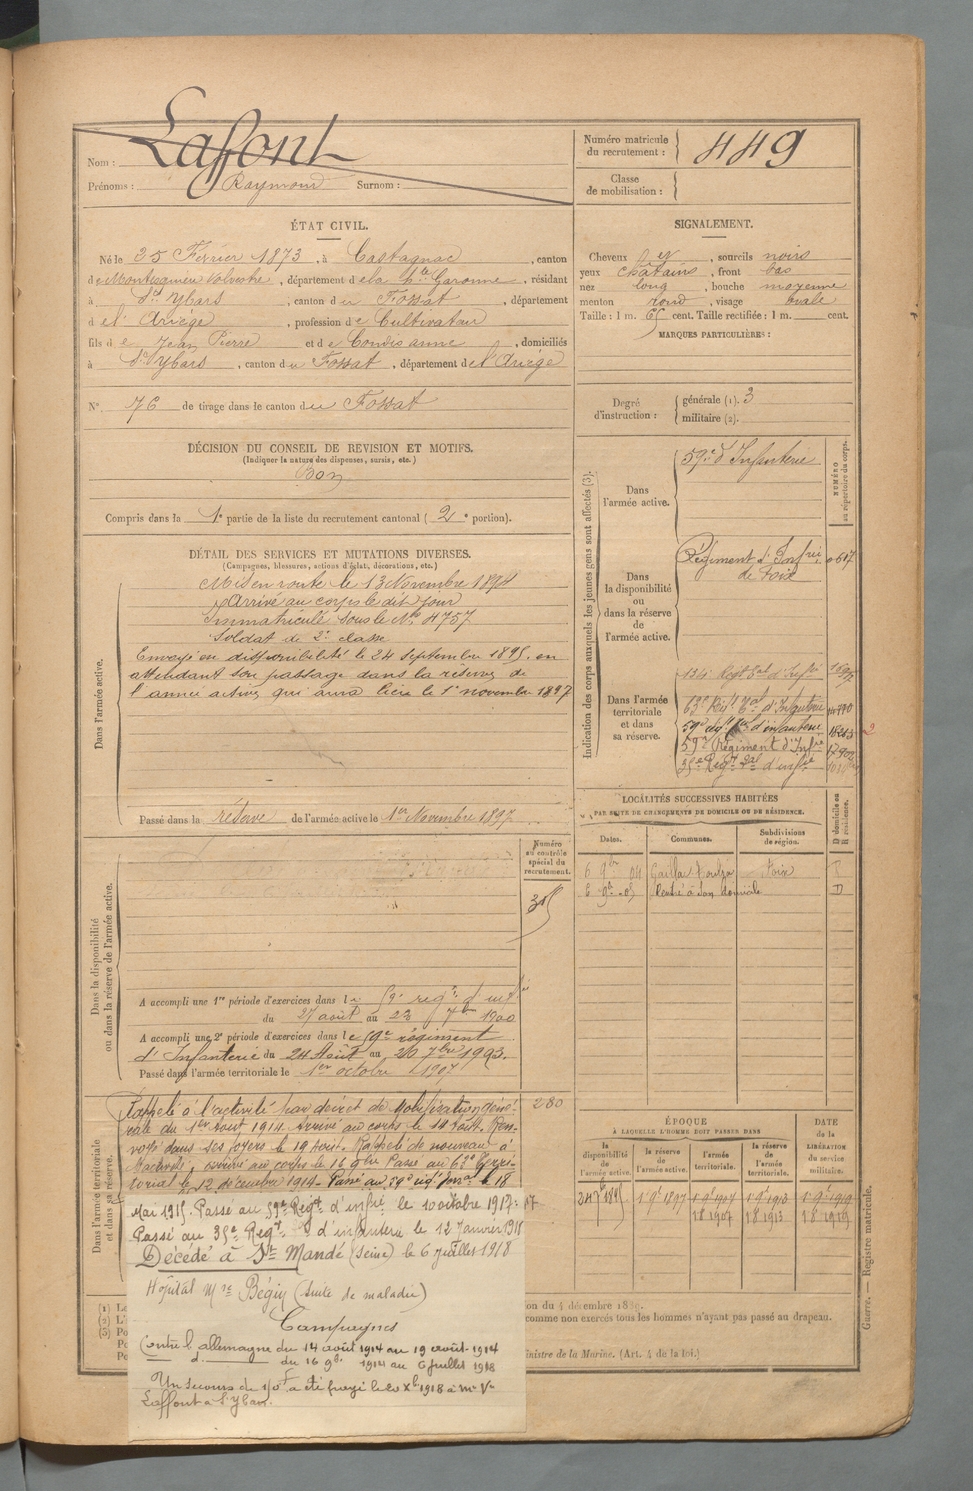 Nom : Laffont
Prénoms : Raymond Surnom :
Numéro matricule du recrutement : 449
Classe de mobilisation :
ÉTAT CIVIL.
Né le 25 Février 1873, à Castagnac, canton
de Montesquieu Volvestre, département de la Hte Garonne, résidant
à St Ybars, canton du Fossat, département
de l'Ariège, profession de Cultivateur
fils de Jean Pierre et de Condis anne, domiciliés
à St Ybars, canton du Fossat, département de l'Ariège
N° 76 de tirage dans le canton du Fossat
SIGNALEMENT.
Cheveux et, sourcils noirs
yeux chatains, front bas
nez long, bouche moyenne
menton rond, visage ovale
Taille : 1 m. 65 cent. Taille rectifiée : 1 m. cent.
MARQUES PARTICULIÈRES :
Degré d'instruction : générale (1). 3
militaire (2).
DÉCISION DU CONSEIL DE REVISION ET MOTIFS.
(Indiquer la nature des dispenses, sursis, etc.)
Bon
Compris dans la 1e partie de la liste du recrutement cantonal (2e portion).
DÉTAIL DES SERVICES ET MUTATIONS DIVERSES.
(Campagnes, blessures, actions d'éclat, décorations, etc.)
Dans l'armée active.
Mis en route le 13 Novembre 1894
Arrivé au corps le dit jour
Immatriculé sous le No 4757
Soldat de 2e classe
Envoyé en disponibilité le 24 septembre 1895, en
attendant son passage dans la réserve de
l'armée active qui aura lieu le 1er novembre 1897
Passé dans la réserve de l'armée active le 1er Novembre 1897
Indication des corps auxquels les jeunes gens sont affectés (3).
NUMÉRO au répertoire du corps.
Dans l'armée active.
59e d'Infanterie
Dans la disponibilité ou dans la réserve de l'armée active.
Régiment d'Infrie
de Foix
Dans l'armée territoriale et dans sa réserve.
134 Regt tal d'Infie
63e Regt Tal d'Infanterie
59e regt tal d'infanterie
59e Régiment d'Infie
35e Regt tal d'infie
LOCALITÉS SUCCESSIVES HABITÉES
PAR SUITE DE CHANGEMENTS DE DOMICILE OU DE RÉSIDENCE.
Dates. Communes. Subdivisions de région. D domicile ou R résidence.
6 9bre 04 Gaillac Toulza Foix R
6 9re 05 Rentré à son domicile D
Numéro au contrôle spécial du recrutement.
Dans la disponibilité ou dans la réserve de l'armée active.
315
A accompli une 1re période d'exercices dans le 59e regt d'infie
du 27 août au 23 7bre 1900
A accompli une 2e période d'exercices dans le 59e régiment
d'Infanterie du 24 Août au 20 7bre 1903.
Passé dans l'armée territoriale le 1er octobre 1907
Dans l'armée territoriale et dans sa réserve.
280
Rappelé à l'activité par décret de Mobilisation géné-
rale du 1er Aout 1914. Arrivé au corps le 14 Août. Ren-
voyé dans ses foyers le 19 Août. Rappelé de nouveau à
l'activité, arrivé au corps le 16 9bre Passé au 63e Terri-
torial le 12 décembre 1914. Passé au 59e regt terral le 18
Mai 1915. Passé au 59e Regt d'infie le 10 octobre 1917.
Passé au 35e Regt d'infanterie le 12 Janvier 1918
Décédé à St Mandé (Seine) le 6 Juillet 1918
Hôpital Mre Bégin (suite de maladie)
Campagnes
Contre l'allemagne du 14 août 1914 au 19 août 1914
d° du 16 9bre 1914 au 6 juillet 1918
Un secours de 150f a été payé le 20 Xbre 1918 à Me Ve
Laffont à St Ybars.
ÉPOQUE
À LAQUELLE L'HOMME DOIT PASSER DANS
DATE de la LIBÉRATION du service militaire.
la disponibilité de l'armée active. la réserve de l'armée active. l'armée territoriale. la réserve de l'armée territoriale.
24 7bre 1895 1er 9bre 1897 1er 9bre 1907 1er 9bre 1913 1er 9bre 1919
18 1907 18 1913 18 1919
(1) Le
(2) L'i
(3) Po
on du 4 décembre 1889.
comme non exercés tous les hommes n'ayant pas passé au drapeau.
Ministre de la Marine. (Art. 4 de la loi.)
Guerre. — Registre matricule.